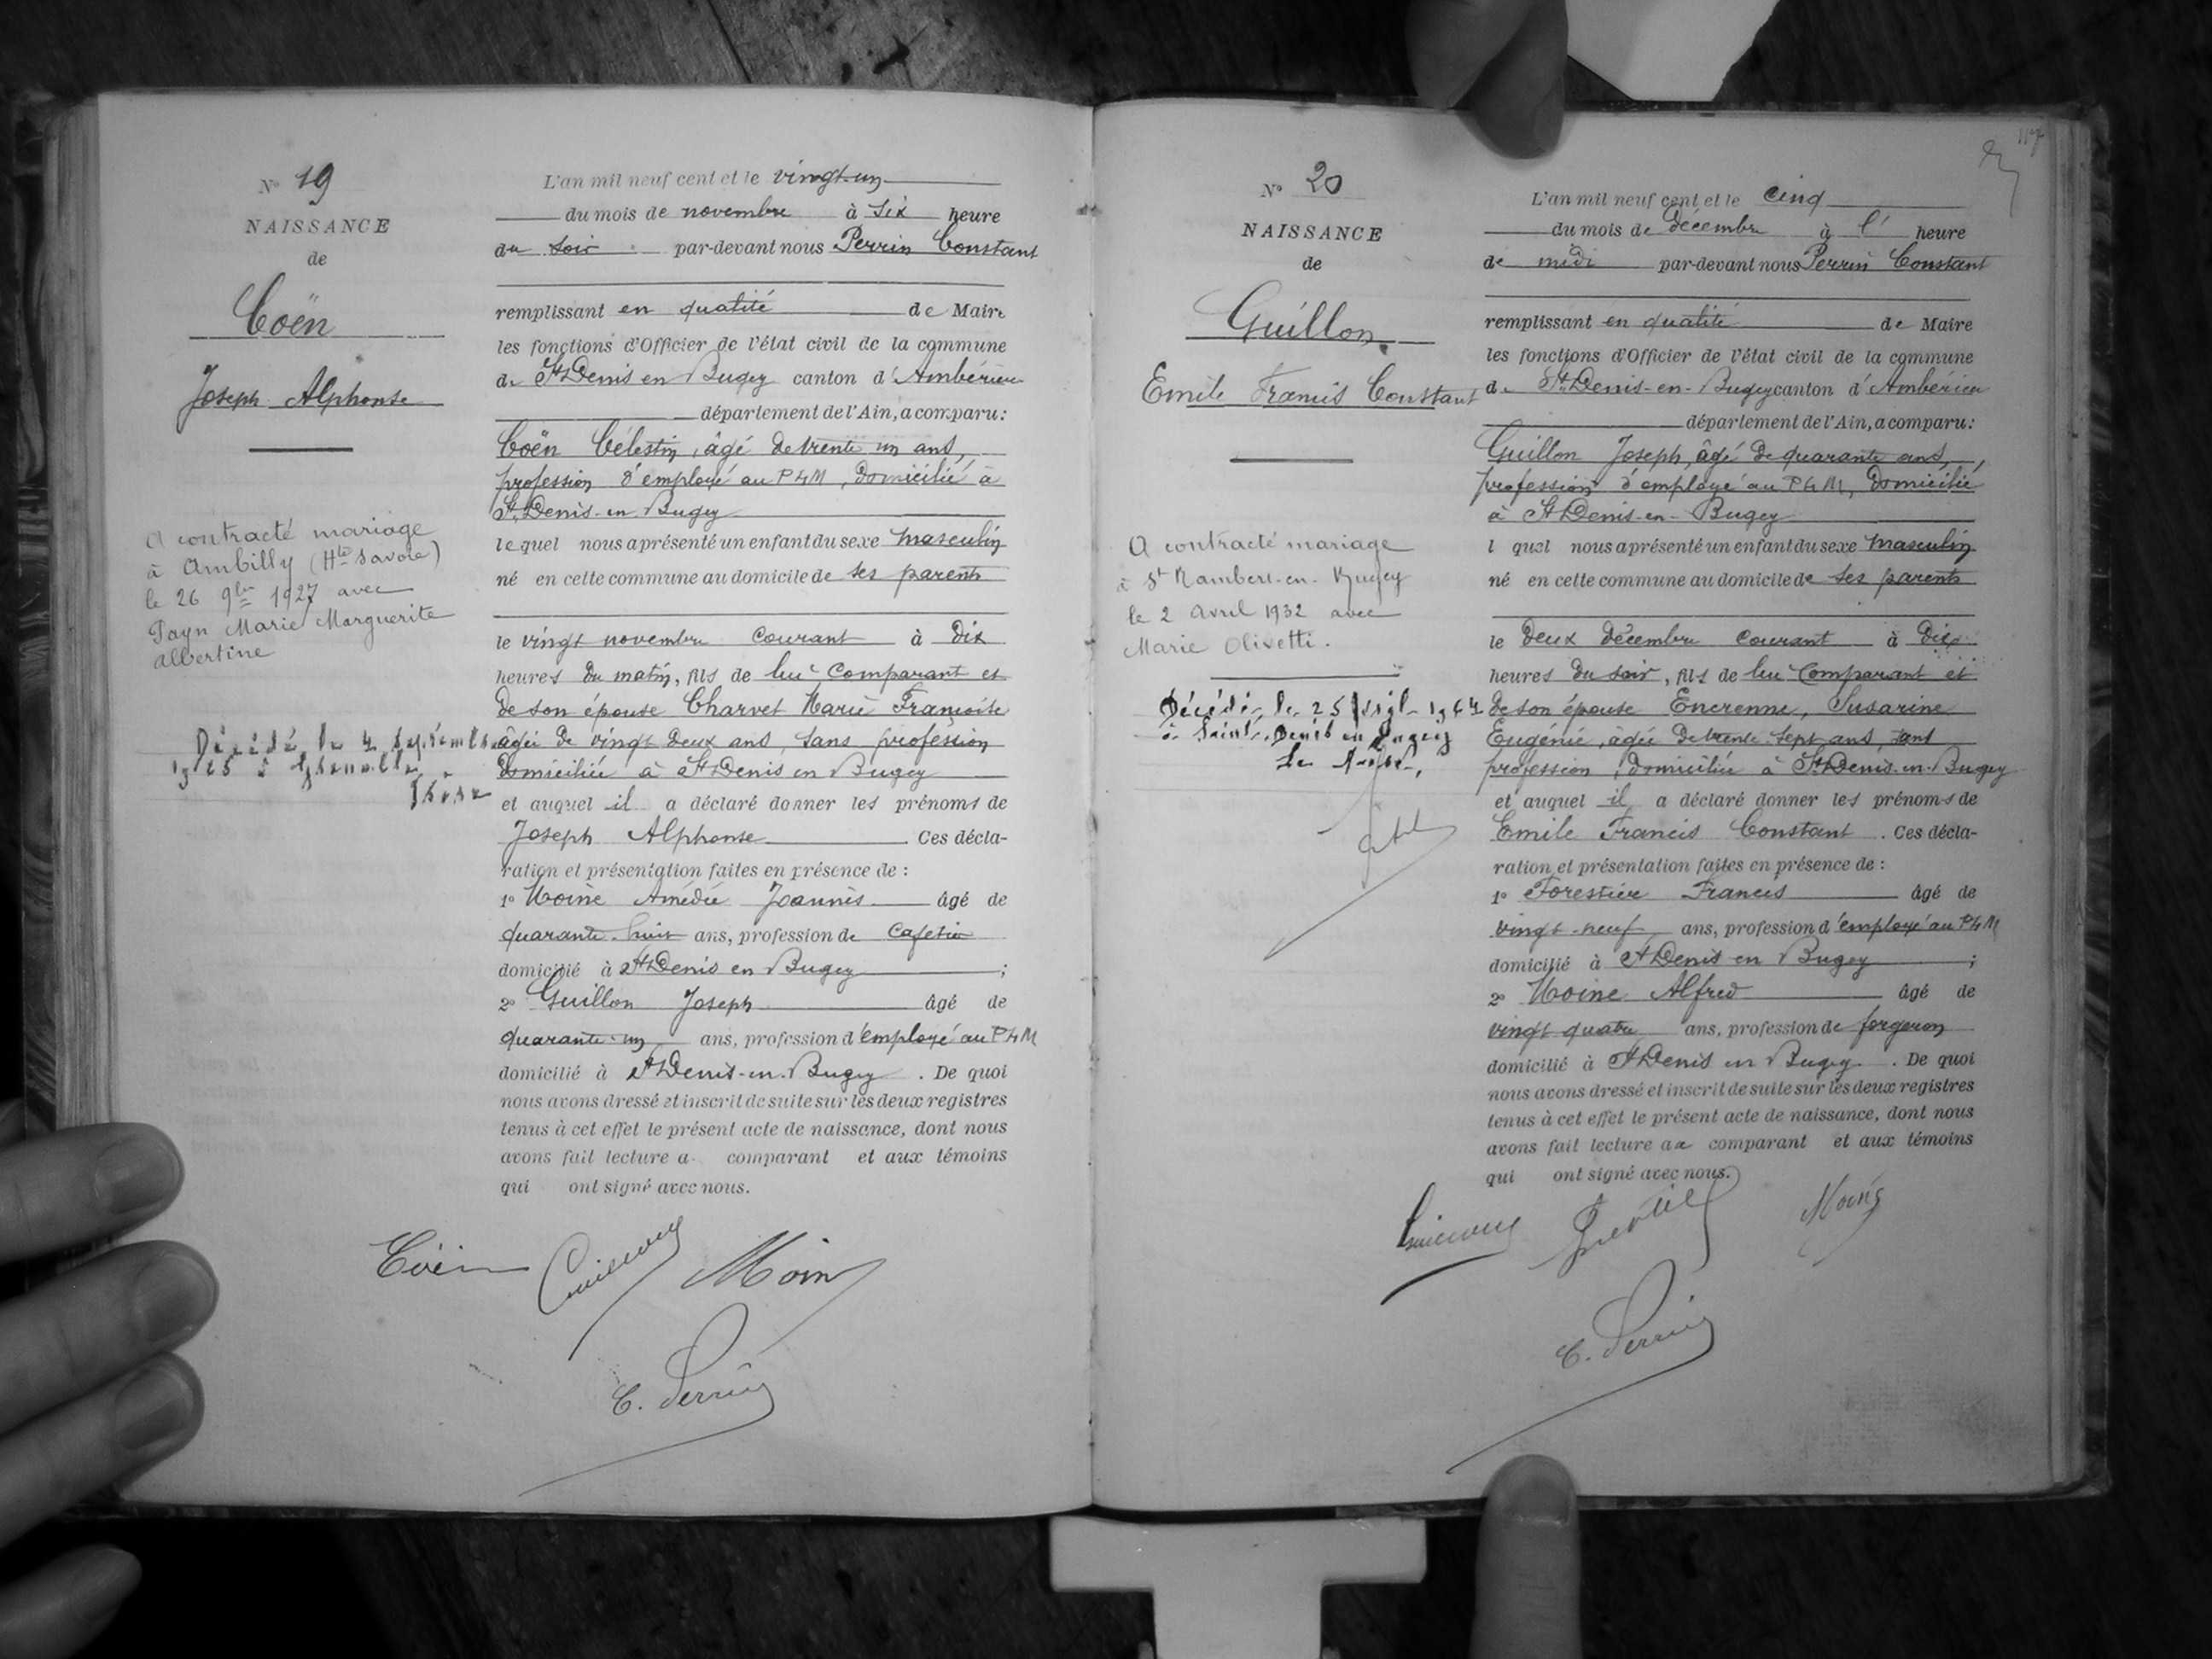 N° 19
NAISSANCE
de
Coën
Joseph Alphonse
A contracté mariage
à Ambilly (Hte Savoie)
le 26 9bre 1927 avec
Payn Marie Marguerite
Albertine
Décédé le 4 septembre
à Grenoble
Isère
L'an mil neuf cent et le vingt-un
du mois de novembre à six heure
du soir par-devant nous Perrin Constant
remplissant en qualité de Maire
les fonctions d'Officier de l'état civil de la commune
de St Denis en Bugey canton d'Ambérieu
département de l'Ain, a comparu:
Coën Célestin, âgé de trente un ans,
profession d'employé au PLM, domicilié à
St Denis-en-Bugey
lequel nous a présenté un enfant du sexe masculin
né en cette commune au domicile de ses parents
le vingt novembre courant à dix
heures du matin, fils de lui comparant et
de son épouse Charvet Marie Françoise
âgée de vingt deux ans, sans profession
domiciliée à St Denis en Bugey
et auquel il a déclaré donner les prénoms de
Joseph Alphonse. Ces décla-
ration et présentation faites en présence de :
1° Moine Amédée Joannès âgé de
quarante-huit ans, profession de cafetier
domicilié à St Denis en Bugey ;
2° Guillon Joseph âgé de
quarante-un ans, profession d'employé au PLM
domicilié à St Denis-en-Bugey. De quoi
nous avons dressé et inscrit de suite sur les deux registres
tenus à cet effet le présent acte de naissance, dont nous
avons fait lecture a comparant et aux témoins
qui ont signé avec nous.
Coën Moine
C. Perrin
N° 20
NAISSANCE
de
Guillon
Emile Francis Constant
A contracté mariage
à St Rambert-en-Bugey
le 2 avril 1932 avec
Marie Olivetti.
Décédé le 25
à Saint-Denis en Bugey
L'an mil neuf cent et le cinq
du mois de décembre à l' heure
de midi par-devant nous Perrin Constant
remplissant en qualité de Maire
les fonctions d'Officier de l'état civil de la commune
de St Denis-en-Bugey canton d'Ambérieu
département de l'Ain, a comparu:
Guillon Joseph, âgé de quarante ans,
profession d'employé au PLM, domicilié
à St Denis-en-Bugey
l quel nous a présenté un enfant du sexe masculin
né en cette commune au domicile de ses parents
le deux décembre courant à dix
heures du soir, fils de lui comparant et
de son épouse Encrenne, Susarine
Eugénie, âgée de trente-sept ans, sans
profession, domiciliée à St Denis-en-Bugey
et auquel il a déclaré donner les prénoms de
Emile Francis Constant. Ces décla-
ration et présentation faites en présence de :
1° Forestier Francis âgé de
vingt-neuf ans, profession d'employé au PLM
domicilié à St Denis en Bugey ;
2° Moine Alfred âgé de
vingt quatre ans, profession de forgeron
domicilié à St Denis en Bugey. De quoi
nous avons dressé et inscrit de suite sur les deux registres
tenus à cet effet le présent acte de naissance, dont nous
avons fait lecture au comparant et aux témoins
qui ont signé avec nous.
Moine
C. Perrin